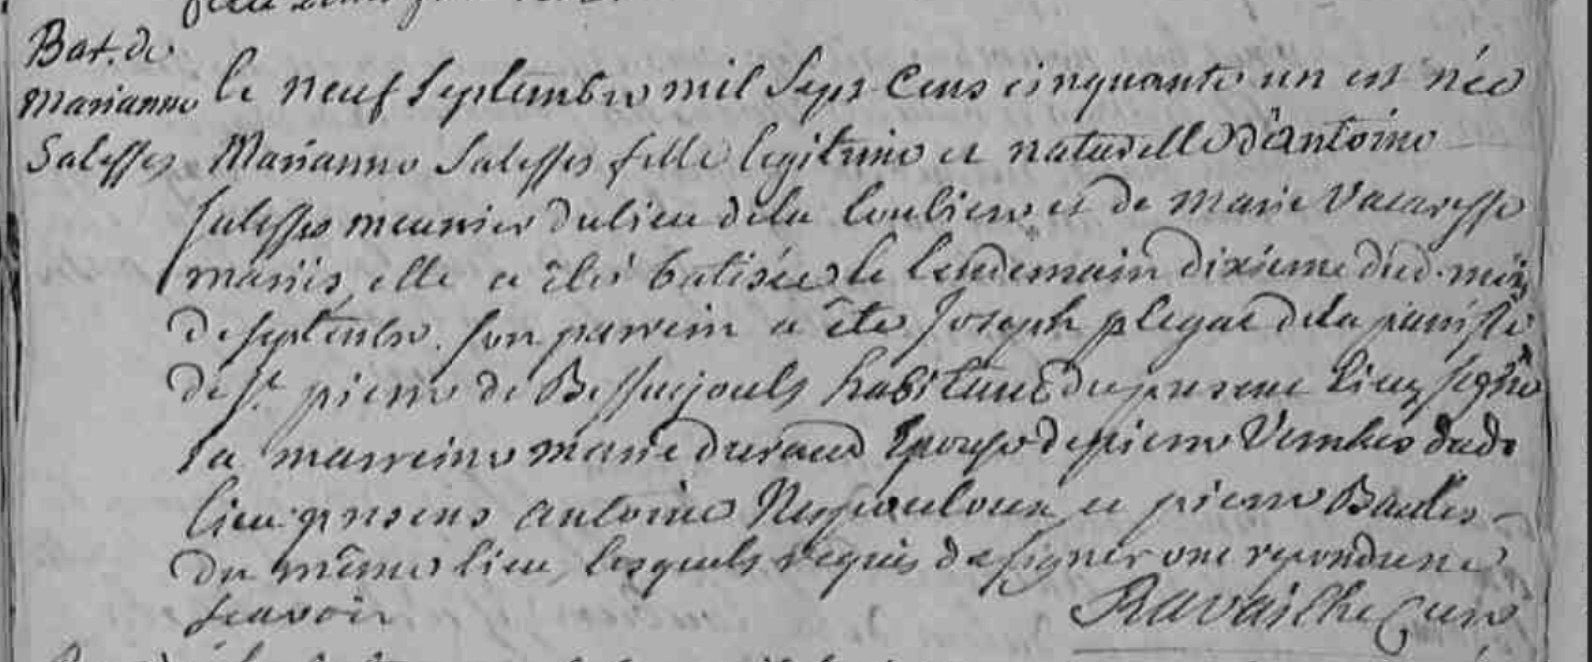 Bat. de
Marianne
Salesses
le neuf Septembre mil Sept Cens cinquante un est née
Marianne Salesses fille legitime et naturelle d'antoine
Salesses meunier du lieu de la et de marie Vacaresse
mariés, elle a été batisée le lendemain dixieme dud. mois
de septembre. son parrein a été Joseph plegat de la parroisse
de st. pierre de Bessuejouls habitant du present lieu, signé
la marreine marie durand Epouse de pierre dud.
lieu presens antoine Nespoulous et pierre Baules
du même lieu, lesquels requis de signer ont repondu ne
scavoir
Ravailhe Curé